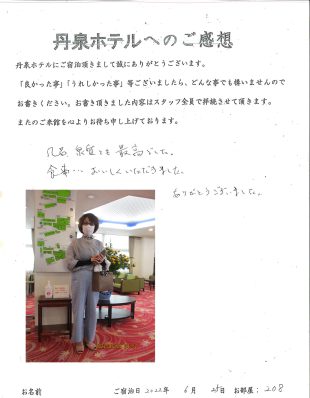 丹泉ホテルへのご感想
丹泉ホテルにご宿泊頂きまして誠にありがとうございます。
「良かった事」「うれしかった事」等ございましたら、どんな事でも構いませんので
お書きください。お書き頂きました内容はスタッフ全員で拝読させて頂きます。
またのご来館を心よりお待ち申し上げております。
泉質とも最高でした。
食事…おいしくいただきました。
ありがとうございました。
お名前 ご宿泊日 2022年 6月 25日 お部屋: 208